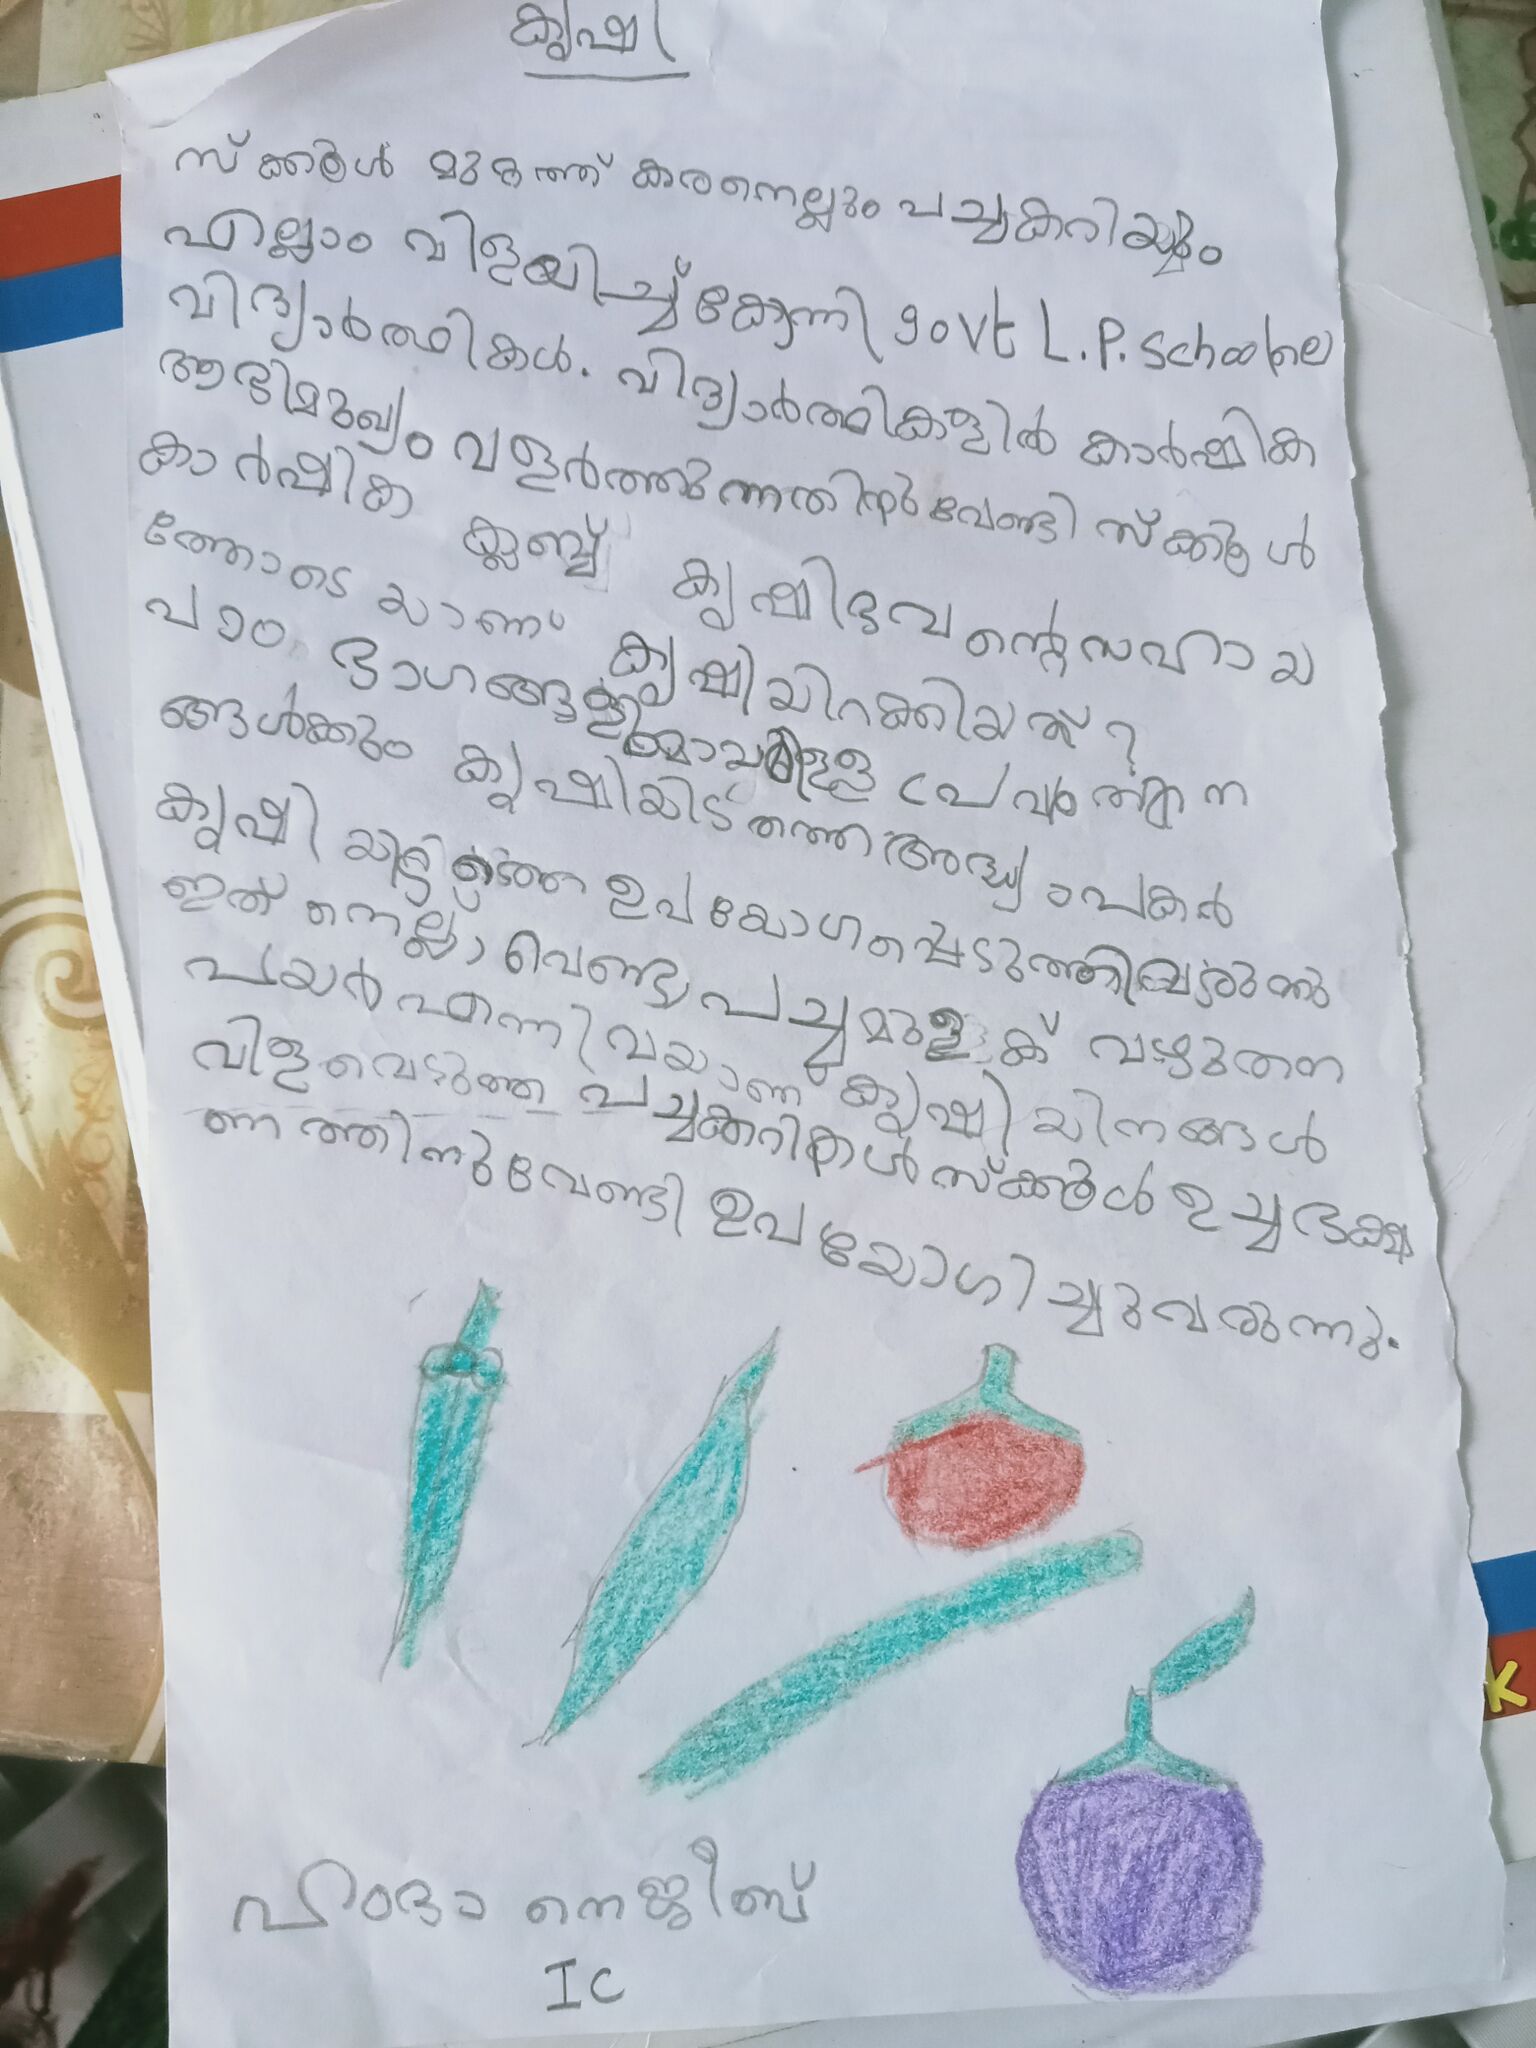 കൃഷി
സ്ക്കൂൾ മുറ്റത്ത് കരനെല്ലും പച്ചകറിയും
എല്ലാം വിളയിച്ച് കോന്നി govt L.P. School ലെ
വിദ്യാർത്ഥികൾ. വിദ്യാർത്ഥികളിൽ കാർഷിക
ആഭിമുഖ്യം വളർത്തുന്നതിനുവേണ്ടി സ്ക്കൂൾ
കാർഷിക ക്ലബ്ബ് കൃഷിഭവൻ്റെ സഹായ
ത്തോടെ യാണ് കൃഷിയിറക്കിയത്?
പാഠ ഭാഗങ്ങളുമായുള്ള പ്രവർത്തന
ങ്ങൾക്കും കൃഷിയിടത്തെ അദ്ധ്യാപകർ
കൃഷി ഉപയോഗപ്പെടുത്തിവരുന്നു
ഇത് നെല്ല്, വെണ്ട, പച്ചമുളക് വഴുതന
പയർ എന്നിവയാണ് കൃഷിയിനങ്ങൾ
വിളവെടുത്ത പച്ചക്കറികൾ സ്ക്കൂൾ ഉച്ച ഭക്ഷ
ണത്തിനുവേണ്ടി ഉപയോഗിച്ചുവരുന്നു.
ഹംദാ നെജീബ്
I C